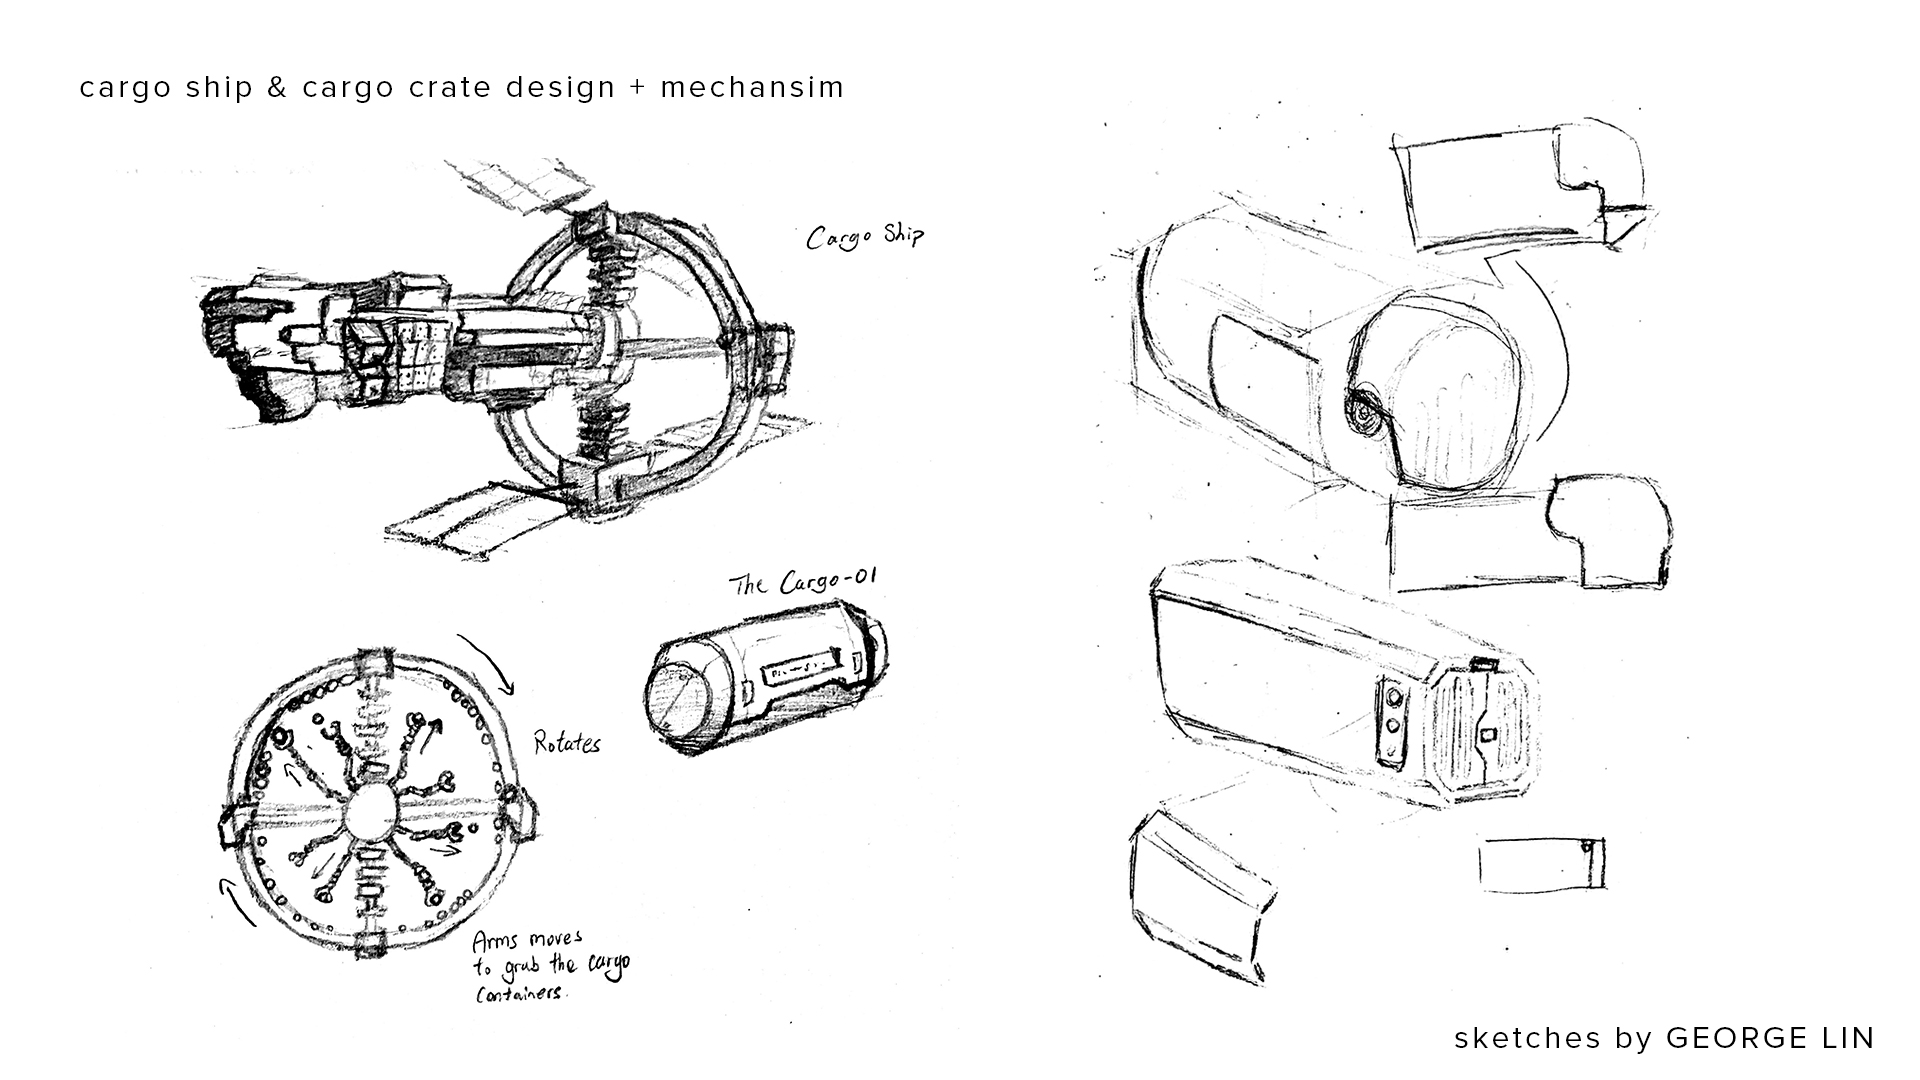 cargo ship & cargo crate design + mechansim
Cargo Ship
The Cargo-01
Rotates
Arms moves
to grab the cargo
Containers.
sketches by GEORGE LIN